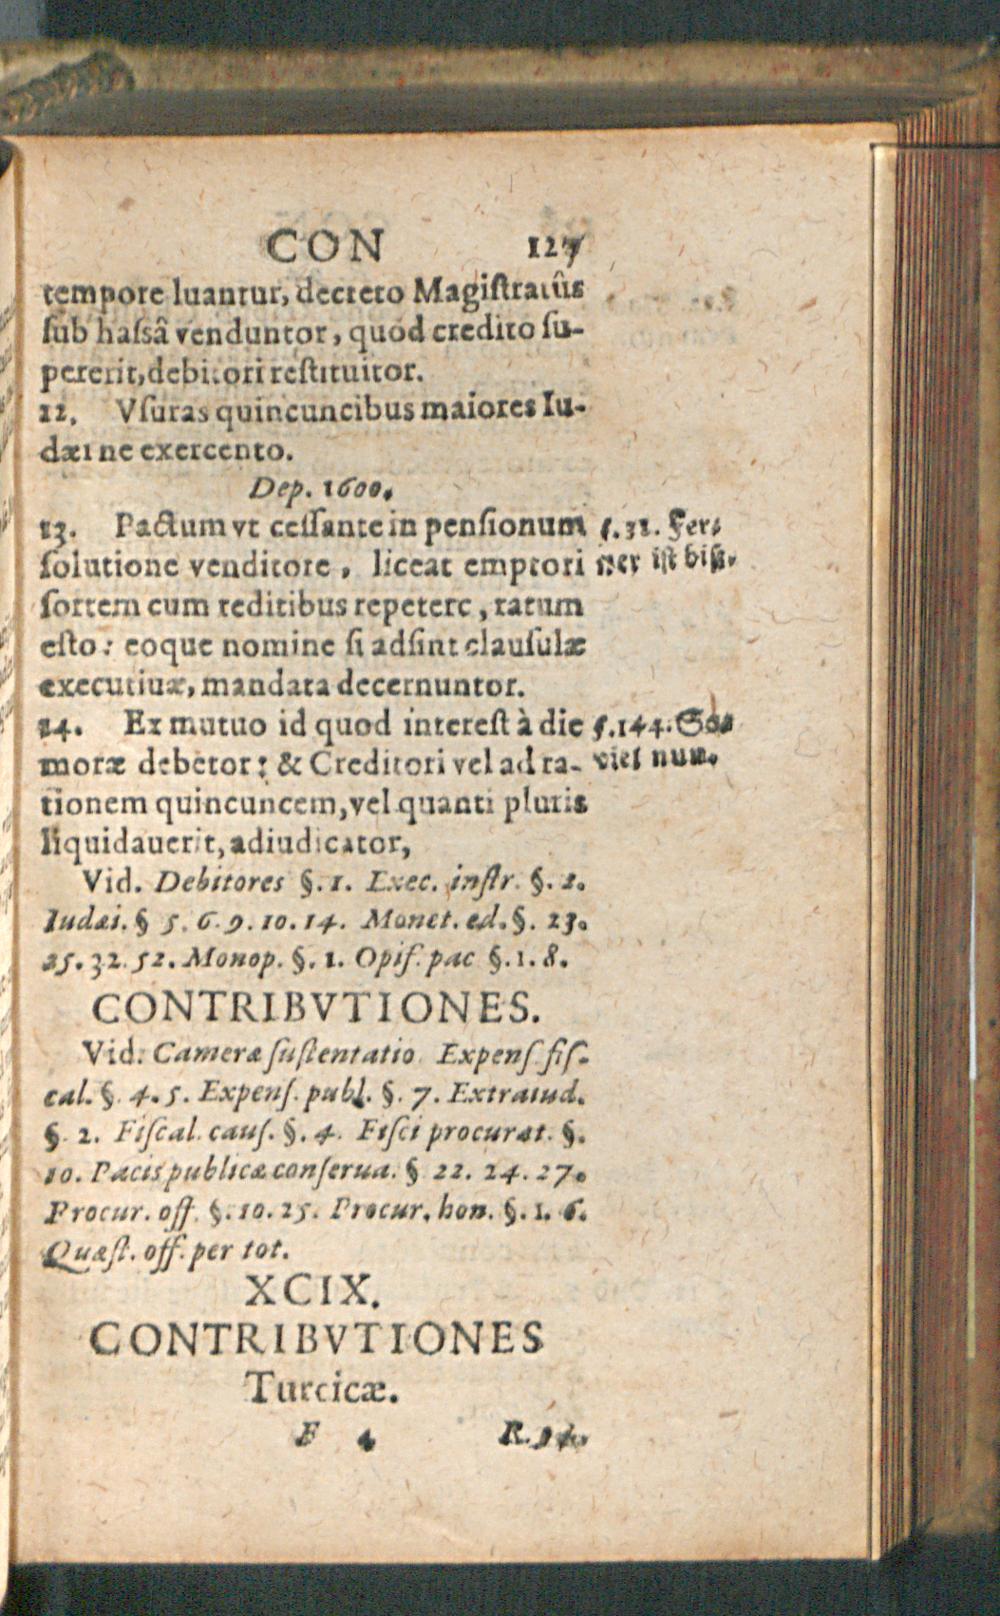 CON 127
tempore luantur, decreto Magiſtratûs
ſub haſsâ venduntor, quod credito ſu-
pererit, debitori reſtituitor.
12. Vſuras quincuncibus maiores Iu-
dæi ne exercento.
Dep. 1600.
13. Pactum vt ceſſante in penſionum
ſolutione venditore, liceat emptori
ſortem cum reditibus repetere, ratum
eſto: eoque nomine ſi adſint clauſulæ
executiuæ, mandata decernuntor.
14. Ex mutuo id quod intereſt à die
moræ debetor: & Creditori vel ad ra-
tionem quincuncem, vel quanti pluris
liquidauerit, adiudicator,
Vid. Debitores §. 1. Exec. inſtr. §. 2.
Iudæi. § 5. 6. 9. 10. 14. Monet. ed. §. 23.
25. 32. 52. Monop. §. 1. Opiſ. pac §. 1. 8.
CONTRIBVTIONES.
Vid. Cameræ ſuſtentatio. Expenſ. fiſ-
cal. §. 4. 5. Expenſ. publ. §. 7. Extraiud.
§. 2. Fiſcal. cauſ. §. 4. Fiſci procurat. §.
10. Pacis publicæ conſerua. § 22. 24. 27.
Procur. off. §. 10. 25. Procur. hon. §. 1. 6.
Quæſt. off. per tot.
XCIX.
CONTRIBVTIONES
Turcicæ.
F 4 R.
ſ. 31. Fer-
ner iſt biß.
ſ. 144. So
viel nun.